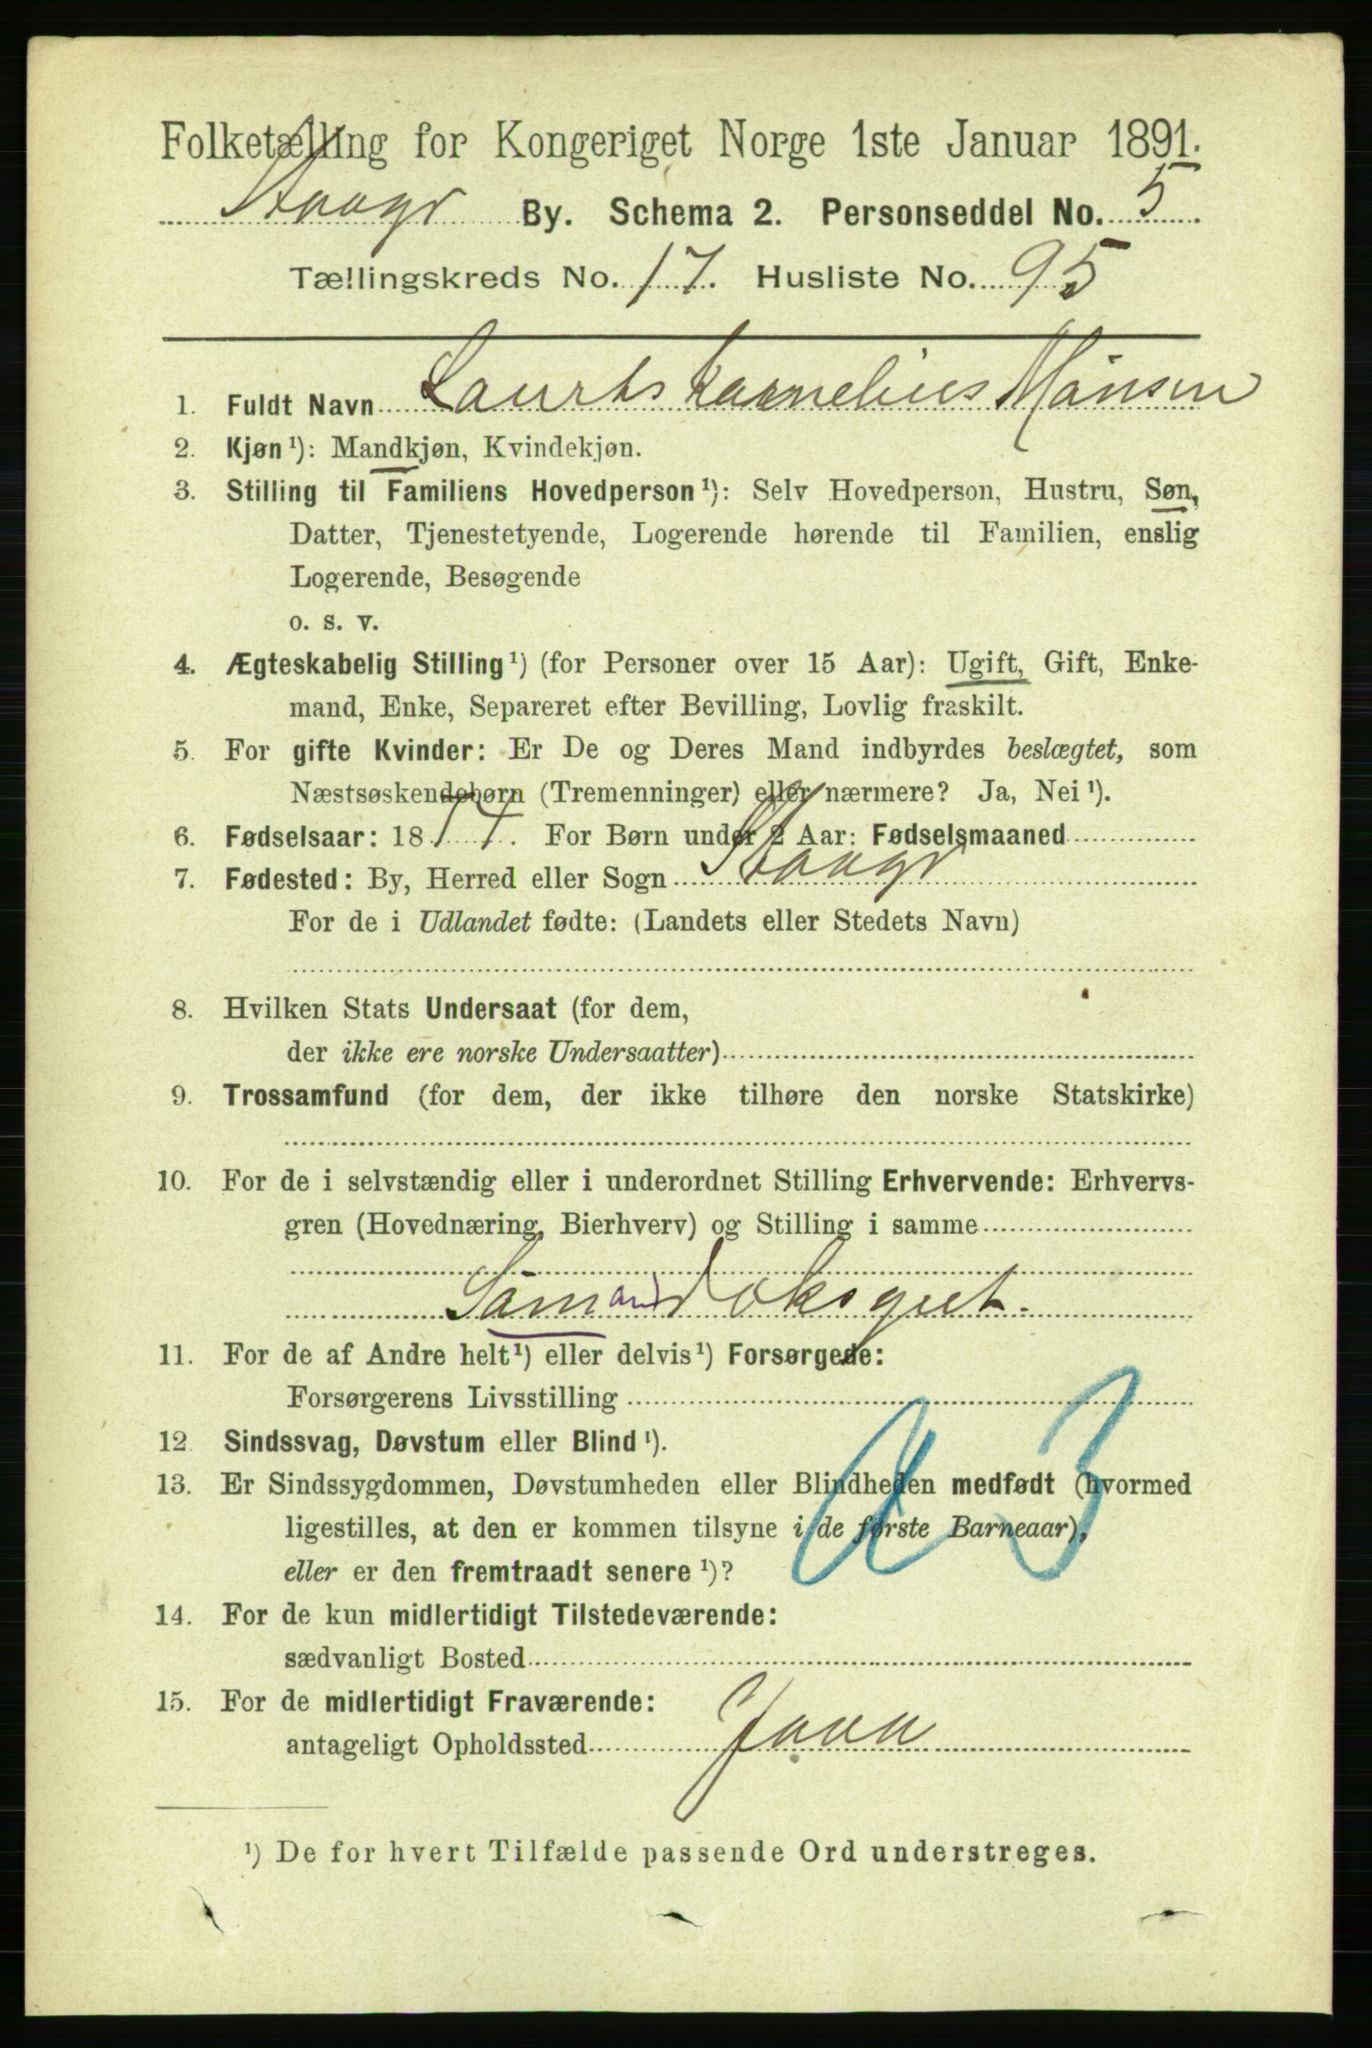 Folketælling for Kongeriget Norge 1ste Januar 1891.
By. Schema 2. Personseddel No. 5
Tællingskreds No. 17. Husliste No. 95
1. Fuldt Navn Laurits Kornelius Mönsen
2. Kjøn ¹): Mandkjøn, Kvindekjøn.
3. Stilling til Familiens Hovedperson ¹): Selv Hovedperson, Hustru, Søn,
Datter, Tjenestetyende, Logerende hørende til Familien, enslig
Logerende, Besøgende
o. s. v.
4. Ægteskabelig Stilling ¹) (for Personer over 15 Aar): Ugift, Gift, Enke-
mand, Enke, Separeret efter Bevilling, Lovlig fraskilt.
5. For gifte Kvinder: Er De og Deres Mand indbyrdes beslægtet, som
Næstsøskendebørn (Tremenninger) eller nærmere? Ja, Nei ¹).
6. Fødselsaar: 1874. For Børn under 2 Aar: Fødselsmaaned
7. Fødested: By, Herred eller Sogn
For de i Udlandet fødte: (Landets eller Stedets Navn)
8. Hvilken Stats Undersaat (for dem,
der ikke ere norske Undersaatter)
9. Trossamfund (for dem, der ikke tilhøre den norske Statskirke)
10. For de i selvstændig eller i underordnet Stilling Erhvervende: Erhvervs-
gren (Hovednæring, Bierhverv) og Stilling i samme
Sömand
11. For de af Andre helt ¹) eller delvis ¹) Forsørgede:
Forsørgerens Livsstilling
12. Sindssvag, Døvstum eller Blind ¹).
13. Er Sindssygdommen, Døvstumheden eller Blindheden medfødt (hvormed
ligestilles, at den er kommen tilsyne i de første Barneaar),
eller er den fremtraadt senere ¹)?
14. For de kun midlertidigt Tilstedeværende:
sædvanligt Bosted
15. For de midlertidigt Fraværende:
antageligt Opholdssted Java
¹) De for hvert Tilfælde passende Ord understreges.